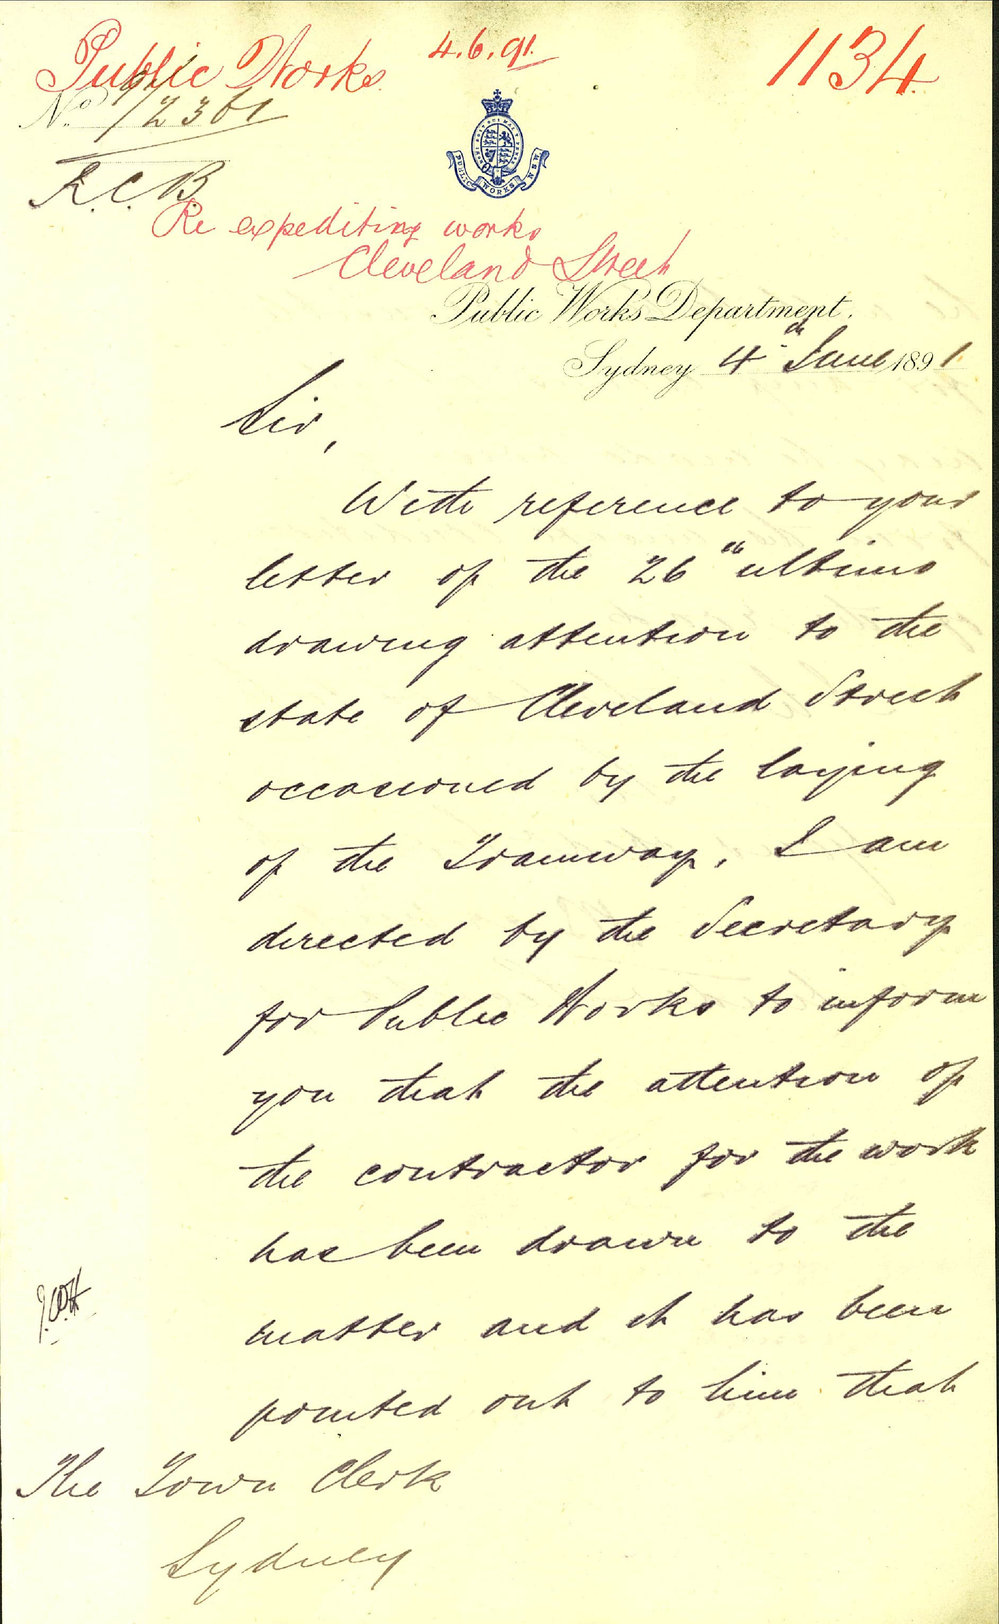 Public Works 4.6.91. 1134
No. 91/2361
R.C.B.
PUBLIC WORKS N.S.W.
Re expediting works
Cleveland Street
Public Works Department.
Sydney 4th June 1891.
Sir,
With reference to your
letter of the 26th ultimo
drawing attention to the
state of Cleveland Street
occasioned by the laying
of the Tramway, I am
directed by the Secretary
for Public Works to inform
you that the attention of
the contractor for the work
has been drawn to the
matter and it has been
pointed out to him that
The Town Clerk
Sydney